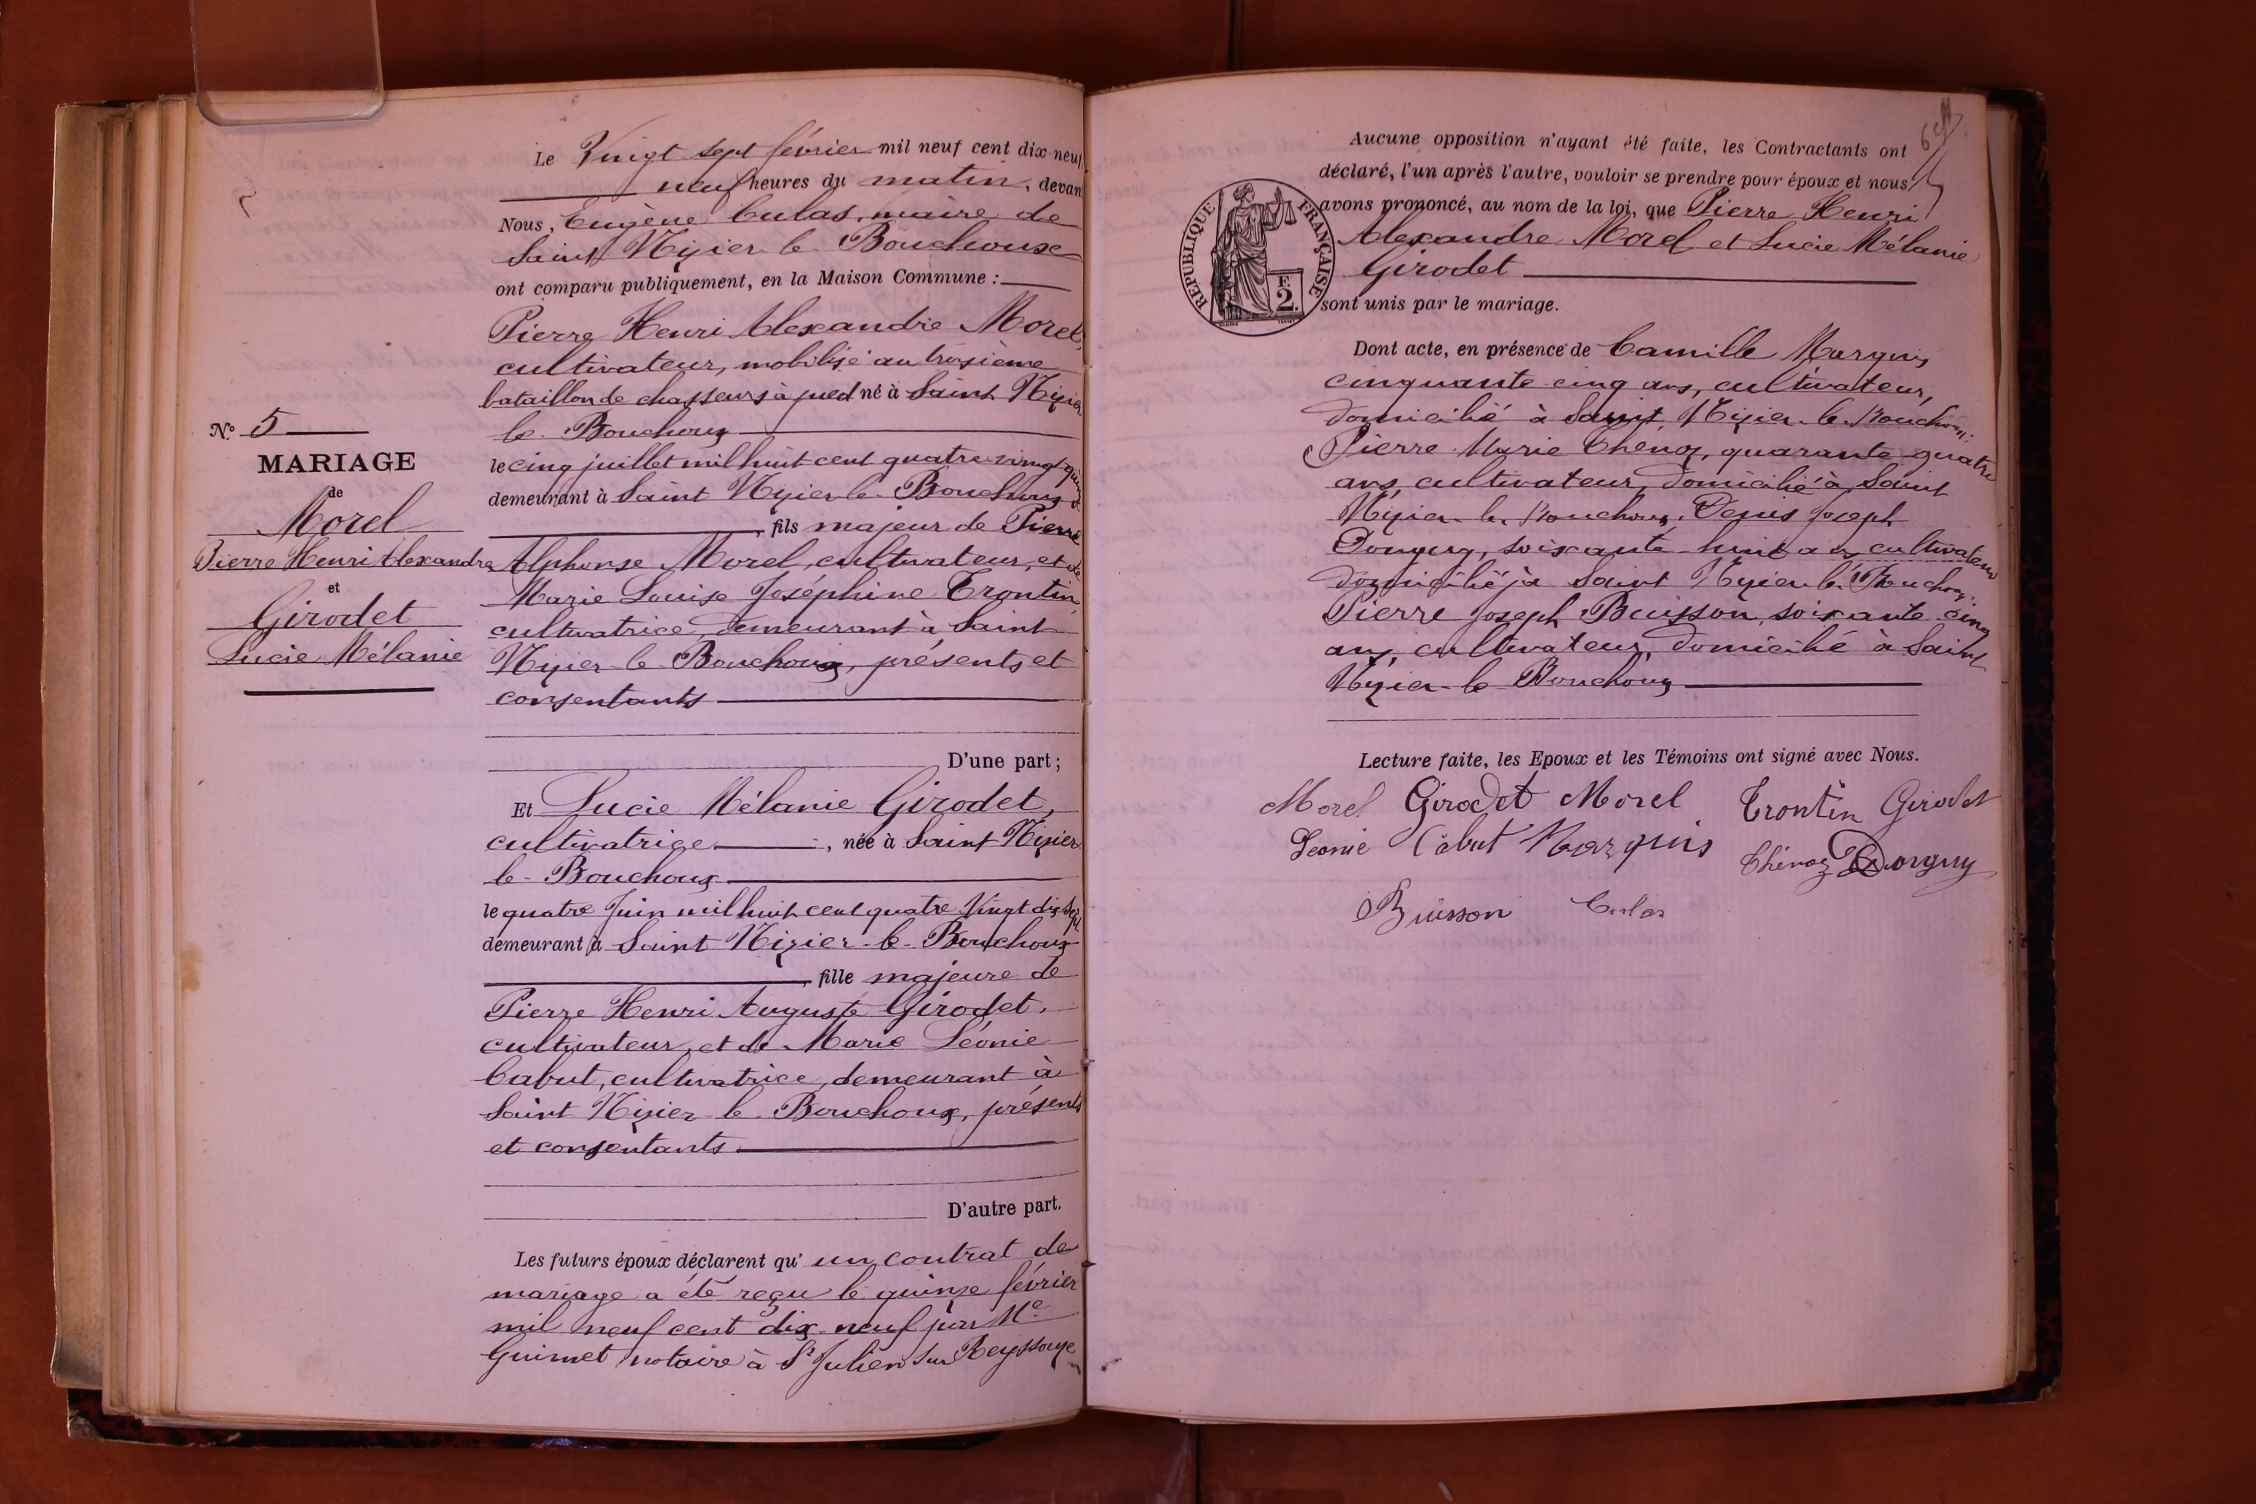 Le Vingt sept février mil neuf cent dix neuf
neuf heures du matin, devan
Nous, Eugène Culas, maire de
Saint Nizier le Bouchoux
ont comparu publiquement, en la Maison Commune :
Pierre Henri Alexandre Morel,
cultivateur, mobilisé au troisième
bataillon de chasseurs à pied né à Saint Nizier
le Bouchoux
le cinq juillet mil huit cent quatre-vingt
demeurant à Saint Nizier le Bouchoux
, fils majeur de Pierre
Alphonse Morel, cultivateur, et de
Marie Louise Joséphine Trontin,
cultivatrice, demeurant à Saint
Nizier le Bouchoux, présents et
consentants
D'une part ;
Nº 5
MARIAGE
de
Morel
Pierre Henri Alexandre
et
Girodet
Lucie Mélanie
Et Lucie Mélanie Girodet,
cultivatrice, née à Saint Nizier
le Bouchoux
le quatre Juin mil huit cent quatre Vingt dix Sept
demeurant à Saint Nizier-le-Bouchoux
, fille majeure de
Pierre Henri Auguste Girodet,
cultivateur, et de Marie Léonie
Cabut, cultivatrice, demeurant à
Saint Nizier le Bouchoux, présents
et consentants
D'autre part.
Les futurs époux déclarent qu' un contrat de
mariage a été reçu le quinze février
mil neuf cent dix-neuf par Me
Guimet notaire à St Julien sur Reyssouze
Aucune opposition n'ayant été faite, les Contractants ont
déclaré, l'un après l'autre, vouloir se prendre pour époux et nous
avons prononcé, au nom de la loi, que Pierre Henri
Alexandre Morel et Lucie Mélanie
Girodet
sont unis par le mariage.
RÉPUBLIQUE FRANÇAISE
E
2.
Dont acte, en présence de Camille Marquis,
cinquante cinq ans, cultivateur,
domicilié à Saint Nizier le Bouchoux;
Pierre Marie Thenoz, quarante-quatre
ans, cultivateur, domicilié à Saint
Nizier le Bouchoux, Denis Joseph
Donguy, soixante-huit ans cultivateur
domicilié à Saint Nizier le Bouchoux;
Pierre Joseph Buisson, soixante cinq
ans, cultivateur, domicilié à Saint
Nizier le Bouchoux
Lecture faite, les Epoux et les Témoins ont signé avec Nous.
Morel Girodet Morel Trontin Girodet
Léonie Cabut Marquis Thénoz Donguy
Buisson Culas